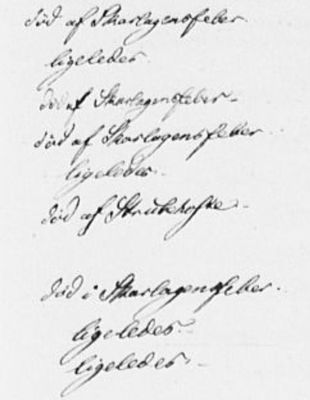 död af Skarlagensfeber
ligeledes
död af Skarlagensfeber
död af Skarlagensfeber
ligeledes
död af Strubehoste
död i Skarlagensfeber.
ligeledes
ligeledes